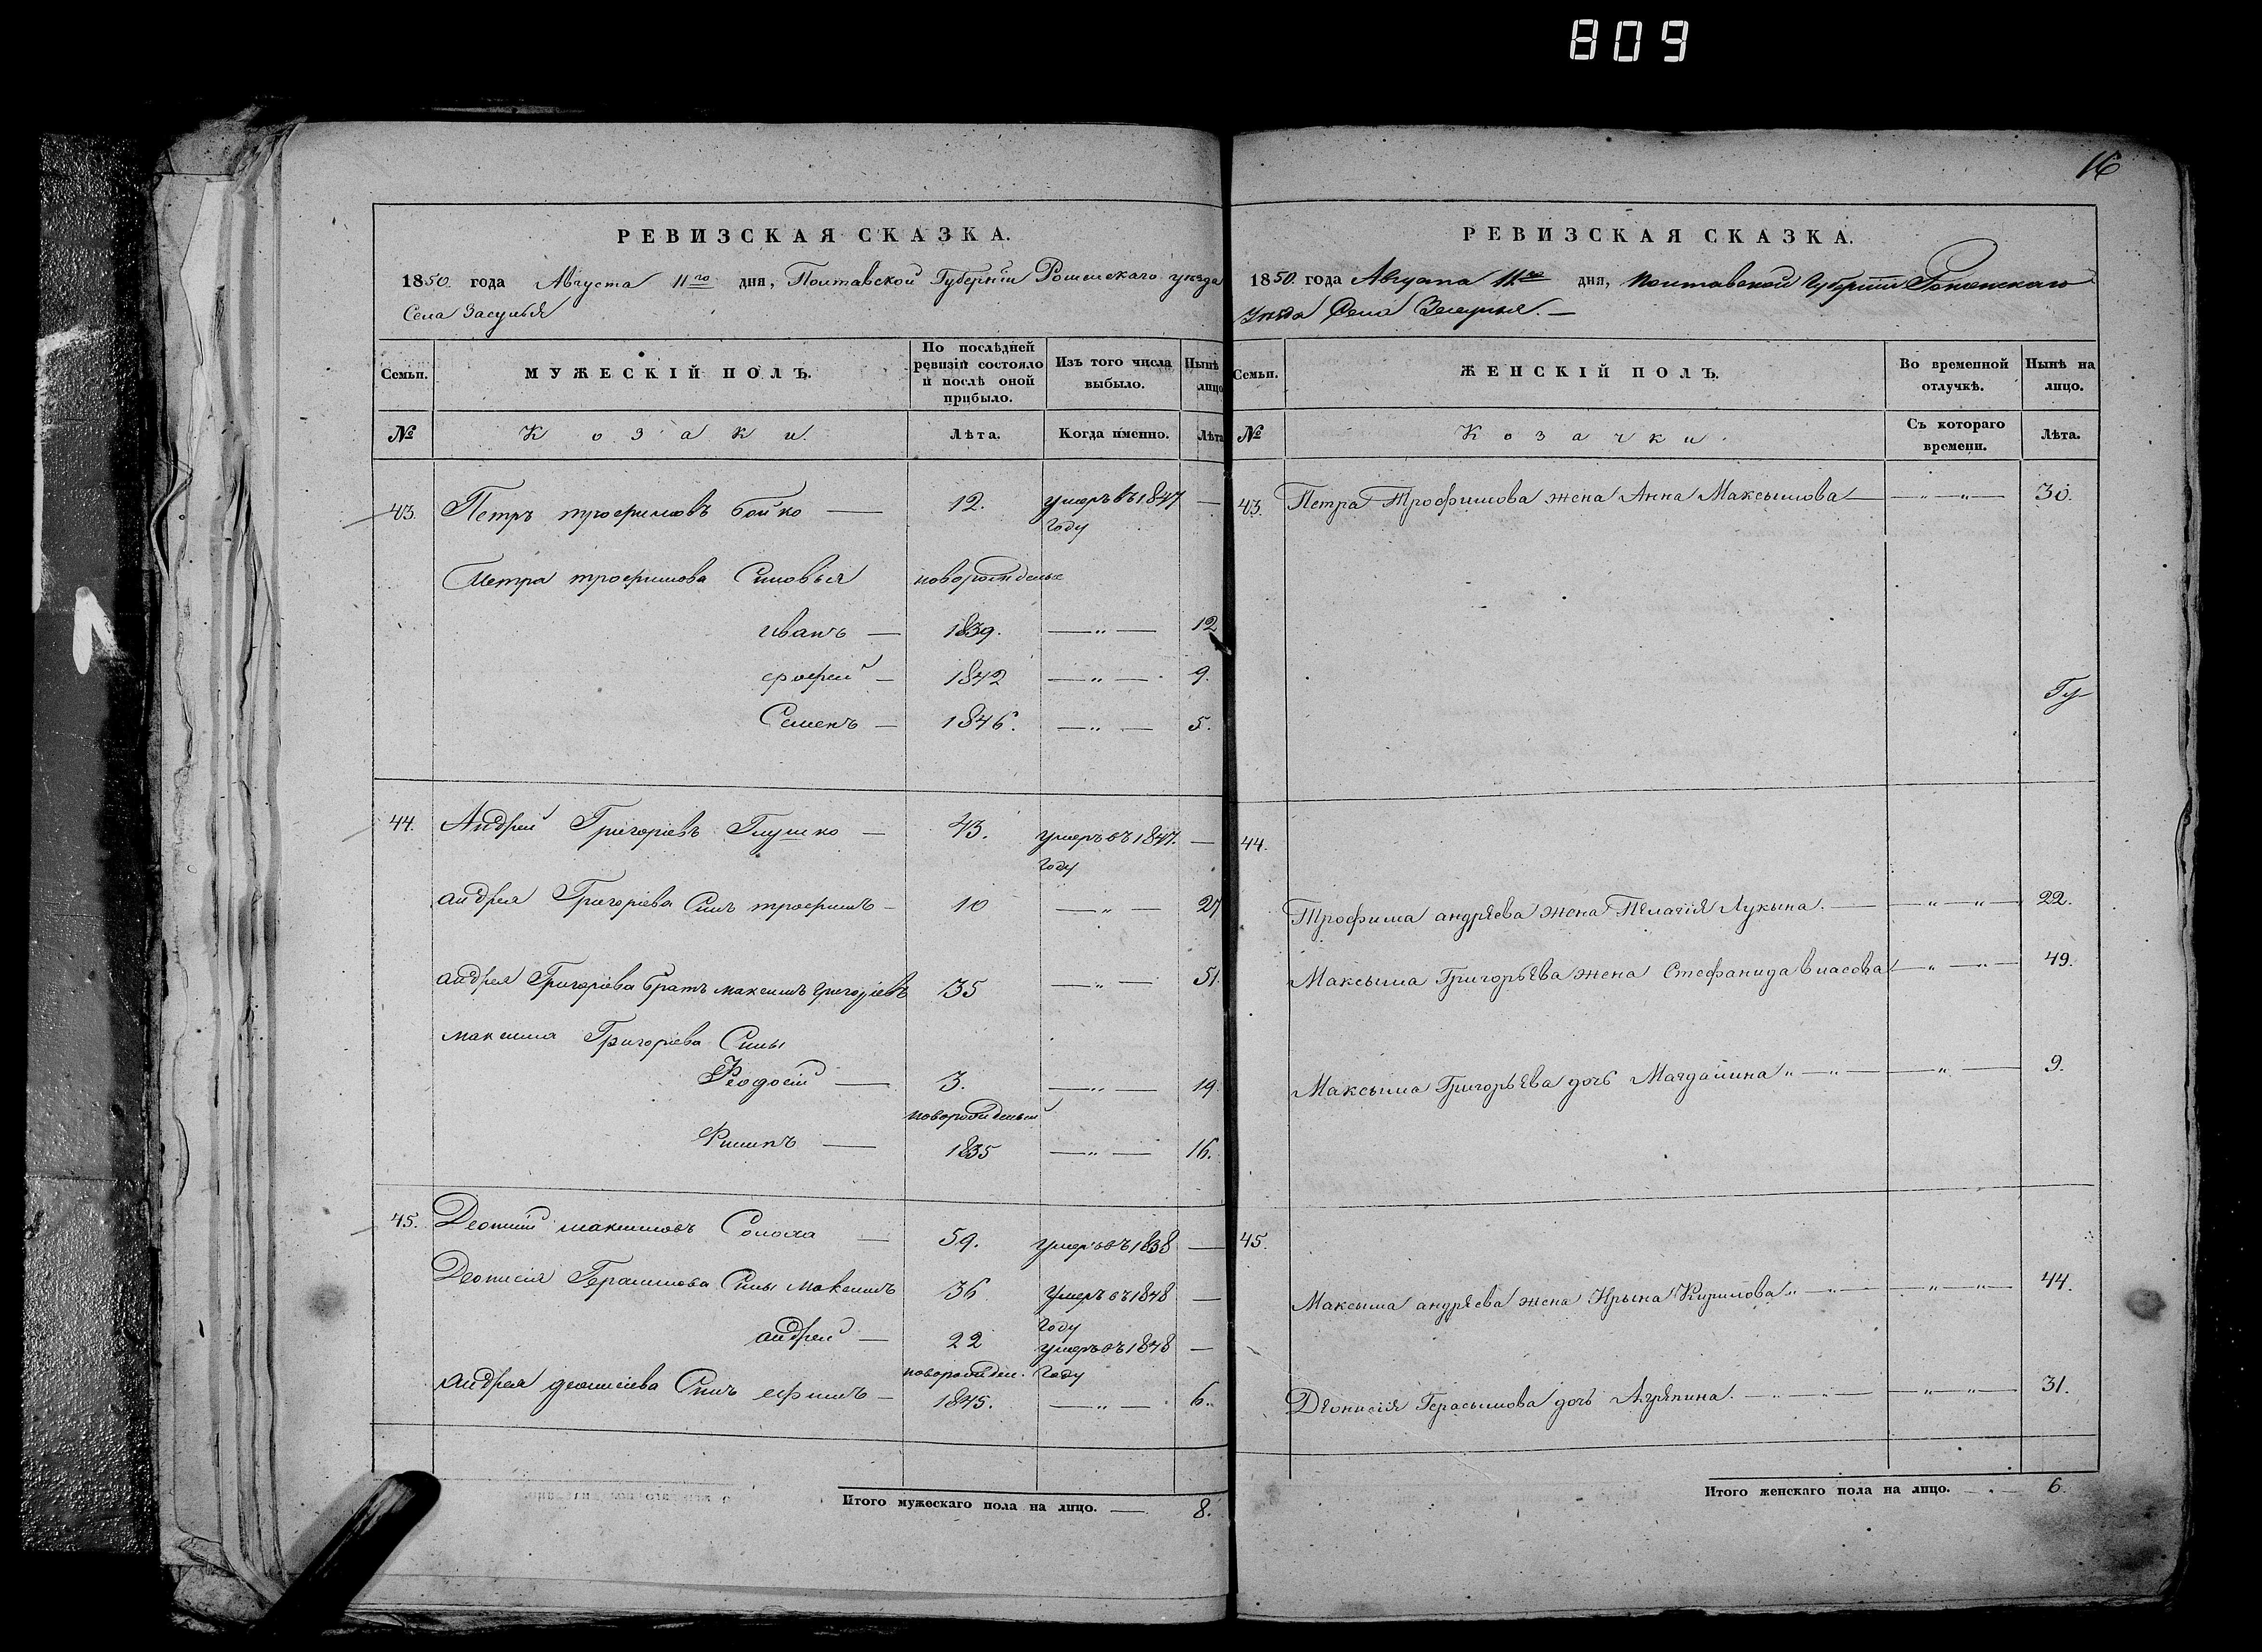 809
16
РЕВИЗСКАЯ СКАЗКА.
1850. года Августа 11го дня, Полтавской Губерніи Роменскаго уѣзда
Села Засулья
Семьи.
МУЖЕСКІЙ ПОЛЪ.
По послѣдней ревизіи состояло и послѣ оной прибыло.
Изъ того числа выбыло.
Нынѣ лицо
№
Козаки.
Лѣта.
Когда именно.
Лѣта
43. Петръ трофимовъ Бойко — 12. умеръ въ 1847 —
году
Петра трофимова Сыновья новорожденые
иванъ — 1839. —„— 12
ерофей — 1842 —„— 9.
Семенъ — 1846. —„— 5.
44. Андрей Григоріевъ Глушко — 43. умеръ въ 1847. —
году
андрея Григоріева Сынъ трофимъ — 10 —„— 27
андрея Григоріева братъ максимъ григоріевъ 35 —„— 51.
максима Григоріева Сыны
Феодосій — 3. —„— 19.
новорожденый
Филипъ — 1835 —„— 16.
45. Деонисій Солоха — 59. умеръ въ 1838 —
Деонисія Герасимова Сыны максимъ 36 умеръ въ 1848 —
году
андрей — 22 умеръ въ 1848 —
новорожден. году
андрея деонисіева Сынъ ефимъ — 1845. —„— 6.
Итого мужескаго пола на лицо. — 8.
РЕВИЗСКАЯ СКАЗКА.
1850. года Августа 11го дня, Полтавской Губерніи Роменскаго
Уѣзда Села Засулья. —
Семьи.
ЖЕНСКІЙ ПОЛЪ.
Во временной отлучкѣ.
Нынѣ на лицо.
№
Козачки.
Съ котораго времени.
Лѣта.
43. Петра Трофимова жена Анна Максымова — —„—„— 30.
44.
Трофима андрѣева жена Пелагія Лукына. — —„—„— 22.
Максыма Григорьѣва жена Стефанида власова —„—„— 49.
Максыма Григорьѣва дочь Магдалина „—„— —„— 9.
45.
Максыма андрѣева жена Ирына Кирилова „—„— —„—„— 44.
Дѣонисія Герасымова дочь Агрѣпина. —„—„— —„—„— 31.
Итого женскаго пола на лицо. — 6.